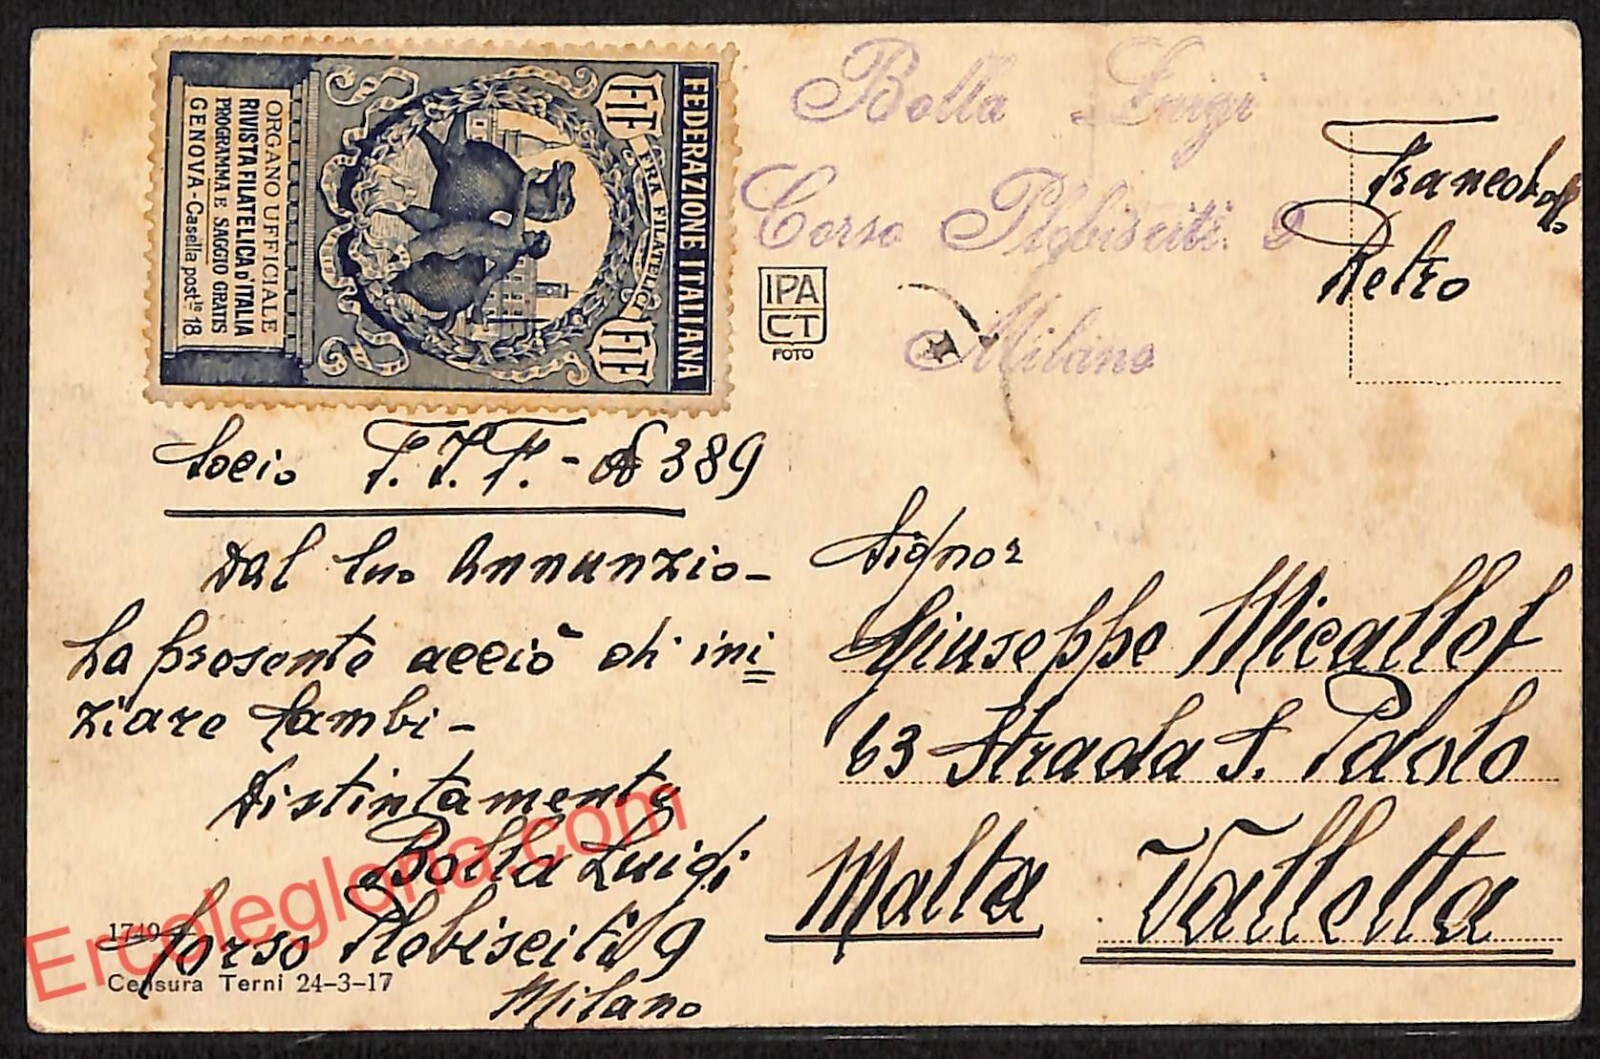 FEDERAZIONE ITALIANA
FRA FILATELICI
FIF FIF
ORGANO UFFICIALE
RIVISTA FILATELICA D'ITALIA
PROGRAMMA E SAGGIO GRATIS
GENOVA - Casella postle 18
Bolla Luigi
Corso Plebisciti. 9
Milano
IPA
CT
FOTO
Francoboll.
Retro
Socio F.I.F. - 389
Dal suo Annunzio -
La presente acciò di ini
ziare Cambi -
Distintamente
Bolla Luigi
Corso Plebisciti 9
Milano
1749
Censura Terni 24-3-17
Signor
Giuseppe Micallef
63 Strada S. Paolo
Malta Valletta
Ercolegloria.com